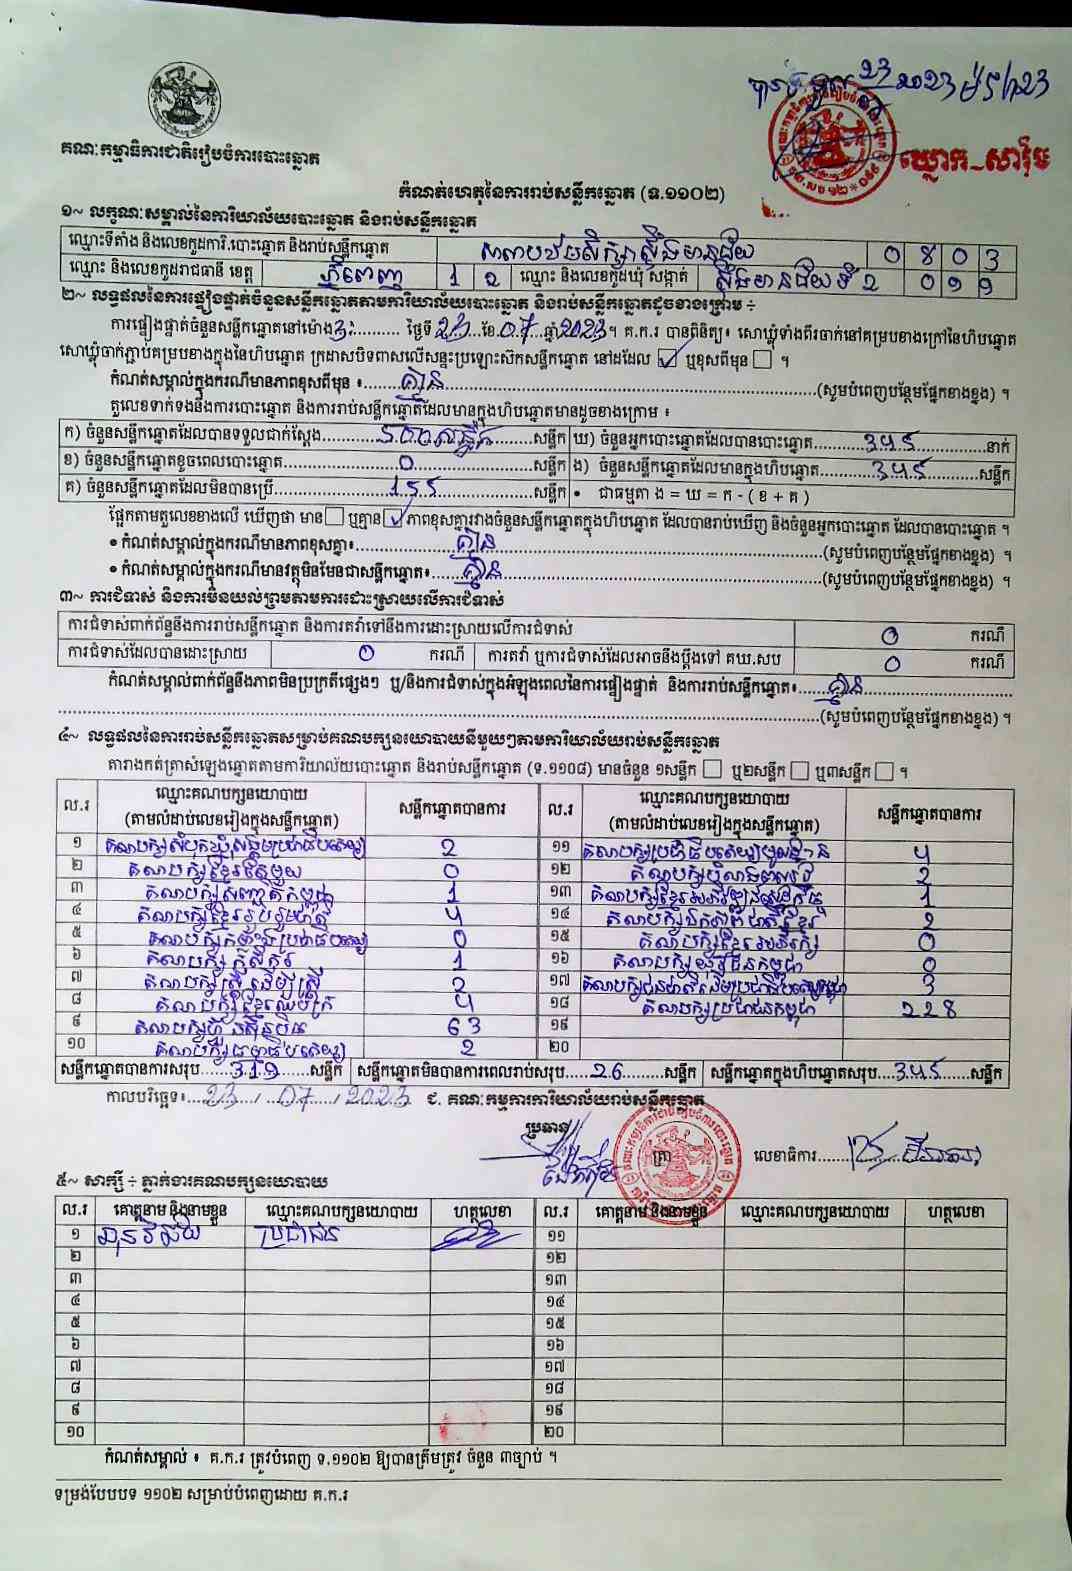 គណៈកម្មាធិការជាតិរៀបចំការបោះឆ្នោត
ឃ្លោក-សារ៉ុន
កំណត់ហេតុនៃការរាប់សន្លឹកឆ្នោត (ទ.១១០២)
១~ លក្ខណៈសម្គាល់នៃការិយាល័យបោះឆ្នោត និងរាប់សន្លឹកឆ្នោត
ឈ្មោះទីតាំង និងលេខកូដការិ.បោះឆ្នោត និងរាប់សន្លឹកឆ្នោត សាលាបឋមសិក្សាស្ទឹងមានជ័យ ០ ៩ ០ 3
ឈ្មោះ និងលេខកូដរាជធានី ខេត្ត ភ្នំពេញ 1 2 ឈ្មោះ និងលេខកូដឃុំ សង្កាត់ ស្ទឹងមានជ័យទី2 ០ ១ ១
២~ លទ្ធផលនៃការផ្ទៀងផ្ទាត់ចំនួនសន្លឹកឆ្នោតតាមការិយាល័យបោះឆ្នោត និងរាប់សន្លឹកឆ្នោតដូចខាងក្រោម ÷
ការផ្ទៀងផ្ទាត់ចំនួនសន្លឹកឆ្នោតនៅម៉ោង 3: ថ្ងៃទី 23 ខែ 07 ឆ្នាំ 2023 ។ គ.ក.រ បានពិនិត្យ៖ សោឃ្លុំទាំងពីរចាក់នៅគម្របខាងក្រៅនៃហិបឆ្នោត
សោឃ្លុំចាក់ភ្ជាប់គម្របខាងក្នុងនៃហិបឆ្នោត ក្រដាសបិទពាសលើសន្ទះប្រឡោះស៊កសន្លឹកឆ្នោត នៅដដែល ☑ ឬខុសពីមុន ☐ ។
កំណត់សម្គាល់ក្នុងករណីមានភាពខុសពីមុន ៖ គ្មាន (សូមបំពេញបន្ថែមផ្នែកខាងខ្នង) ។
តួលេខទាក់ទងនឹងការបោះឆ្នោត និងការរាប់សន្លឹកឆ្នោតដែលមានក្នុងហិបឆ្នោតមានដូចខាងក្រោម ៖
ក) ចំនួនសន្លឹកឆ្នោតដែលបានទទួលជាក់ស្តែង 500 សន្លឹក សន្លឹក ឃ) ចំនួនអ្នកបោះឆ្នោតដែលបានបោះឆ្នោត 345 នាក់
ខ) ចំនួនសន្លឹកឆ្នោតខូចពេលបោះឆ្នោត 0 សន្លឹក ង) ចំនួនសន្លឹកឆ្នោតដែលមានក្នុងហិបឆ្នោត 345 សន្លឹក
គ) ចំនួនសន្លឹកឆ្នោតដែលមិនបានប្រើ 155 សន្លឹក • ជាធម្មតា ង = ឃ = ក - ( ខ + គ )
ផ្អែកតាមតួលេខខាងលើ ឃើញថា មាន ☐ ឬគ្មាន ☑ ភាពខុសគ្នារវាងចំនួនសន្លឹកឆ្នោតក្នុងហិបឆ្នោត ដែលបានរាប់ឃើញ និងចំនួនអ្នកបោះឆ្នោត ដែលបានបោះឆ្នោត ។
• កំណត់សម្គាល់ក្នុងករណីមានភាពខុសគ្នា៖ គ្មាន (សូមបំពេញបន្ថែមផ្នែកខាងខ្នង) ។
• កំណត់សម្គាល់ក្នុងករណីមានវត្ថុមិនមែនជាសន្លឹកឆ្នោត៖ គ្មាន (សូមបំពេញបន្ថែមផ្នែកខាងខ្នង) ។
៣~ ការជំទាស់ និងការមិនយល់ព្រមតាមការដោះស្រាយលើការជំទាស់
ការជំទាស់ពាក់ព័ន្ធនឹងការរាប់សន្លឹកឆ្នោត និងការតវ៉ាទៅនឹងការដោះស្រាយលើការជំទាស់ 0 ករណី
ការជំទាស់ដែលបានដោះស្រាយ 0 ករណី ការតវ៉ា ឬការជំទាស់ដែលអាចនឹងប្តឹងទៅ គឃ.សប 0 ករណី
កំណត់សម្គាល់ពាក់ព័ន្ធនឹងភាពមិនប្រក្រតីផ្សេងៗ ឬ/និងការជំទាស់ក្នុងអំឡុងពេលនៃការផ្ទៀងផ្ទាត់ និងការរាប់សន្លឹកឆ្នោត៖ គ្មាន
(សូមបំពេញបន្ថែមផ្នែកខាងខ្នង) ។
៤~ លទ្ធផលនៃការរាប់សន្លឹកឆ្នោតសម្រាប់គណបក្សនយោបាយនីមួយៗតាមការិយាល័យរាប់សន្លឹកឆ្នោត
តារាងកត់ត្រាសំឡេងឆ្នោតតាមការិយាល័យបោះឆ្នោត និងរាប់សន្លឹកឆ្នោត (ទ.១១០៨) មានចំនួន ១សន្លឹក ☐ ឬ២សន្លឹក ☐ ឬ៣សន្លឹក ☐ ។
ល.រ ឈ្មោះគណបក្សនយោបាយ (តាមលំដាប់លេខរៀងក្នុងសន្លឹកឆ្នោត) សន្លឹកឆ្នោតបានការ ល.រ ឈ្មោះគណបក្សនយោបាយ (តាមលំដាប់លេខរៀងក្នុងសន្លឹកឆ្នោត) សន្លឹកឆ្នោតបានការ
១ គណបក្សសំបុកឃ្មុំសង្គមប្រជាធិបតេយ្យ 2 ១១ គណបក្សប្រជាធិបតេយ្យមូលដ្ឋាន 4
២ គណបក្សខ្មែរតែមួយ 0 ១២ 2
៣ គណបក្សសញ្ជាតិកម្ពុជា 1 ១៣ គណបក្សខ្មែរអភិវឌ្ឍន៍សេដ្ឋកិច្ច 1
៤ គណបក្សខ្មែររួបរួមជាតិ 4 ១៤ គណបក្សឯកភាពជាតិខ្មែរ 2
៥ គណបក្សកម្លាំងប្រជាធិបតេយ្យ 0 ១៥ គណបក្សខ្មែរអភិរក្ស 0
៦ គណបក្សកសិករ 1 ១៦ គណបក្សយុវជនកម្ពុជា 0
៧ គណបក្សស្ត្រីដើម្បីស្ត្រី 2 ១៧ 3
៨ គណបក្សខ្មែរឈប់ក្រ 4 ១៨ គណបក្សប្រជាជនកម្ពុជា 228
៩ គណបក្សហ៊្វុនស៊ិនប៉ិច 63 ១៩
១០ គណបក្សធម្មាធិបតេយ្យ 2 ២០
សន្លឹកឆ្នោតបានការសរុប 319 សន្លឹក សន្លឹកឆ្នោតមិនបានការពេលរាប់សរុប 26 សន្លឹក សន្លឹកឆ្នោតក្នុងហិបឆ្នោតសរុប 345 សន្លឹក
កាលបរិច្ឆេទ៖ 23 / 07 / 2023 ជ. គណៈកម្មការការិយាល័យរាប់សន្លឹកឆ្នោត
ប្រធាន ត្រា លេខាធិការ
៥~ សាក្សី ÷ ភ្នាក់ងារគណបក្សនយោបាយ
ល.រ គោត្តនាម និងនាមខ្លួន ឈ្មោះគណបក្សនយោបាយ ហត្ថលេខា ល.រ គោត្តនាម និងនាមខ្លួន ឈ្មោះគណបក្សនយោបាយ ហត្ថលេខា
១ ប្រជាជន ១១
២ ១២
៣ ១៣
៤ ១៤
៥ ១៥
៦ ១៦
៧ ១៧
៨ ១៨
៩ ១៩
១០ ២០
កំណត់សម្គាល់ ៖ គ.ក.រ ត្រូវបំពេញ ទ.១១០២ ឱ្យបានត្រឹមត្រូវ ចំនួន ៣ច្បាប់ ។
ទម្រង់បែបបទ ១១០២ សម្រាប់បំពេញដោយ គ.ក.រ